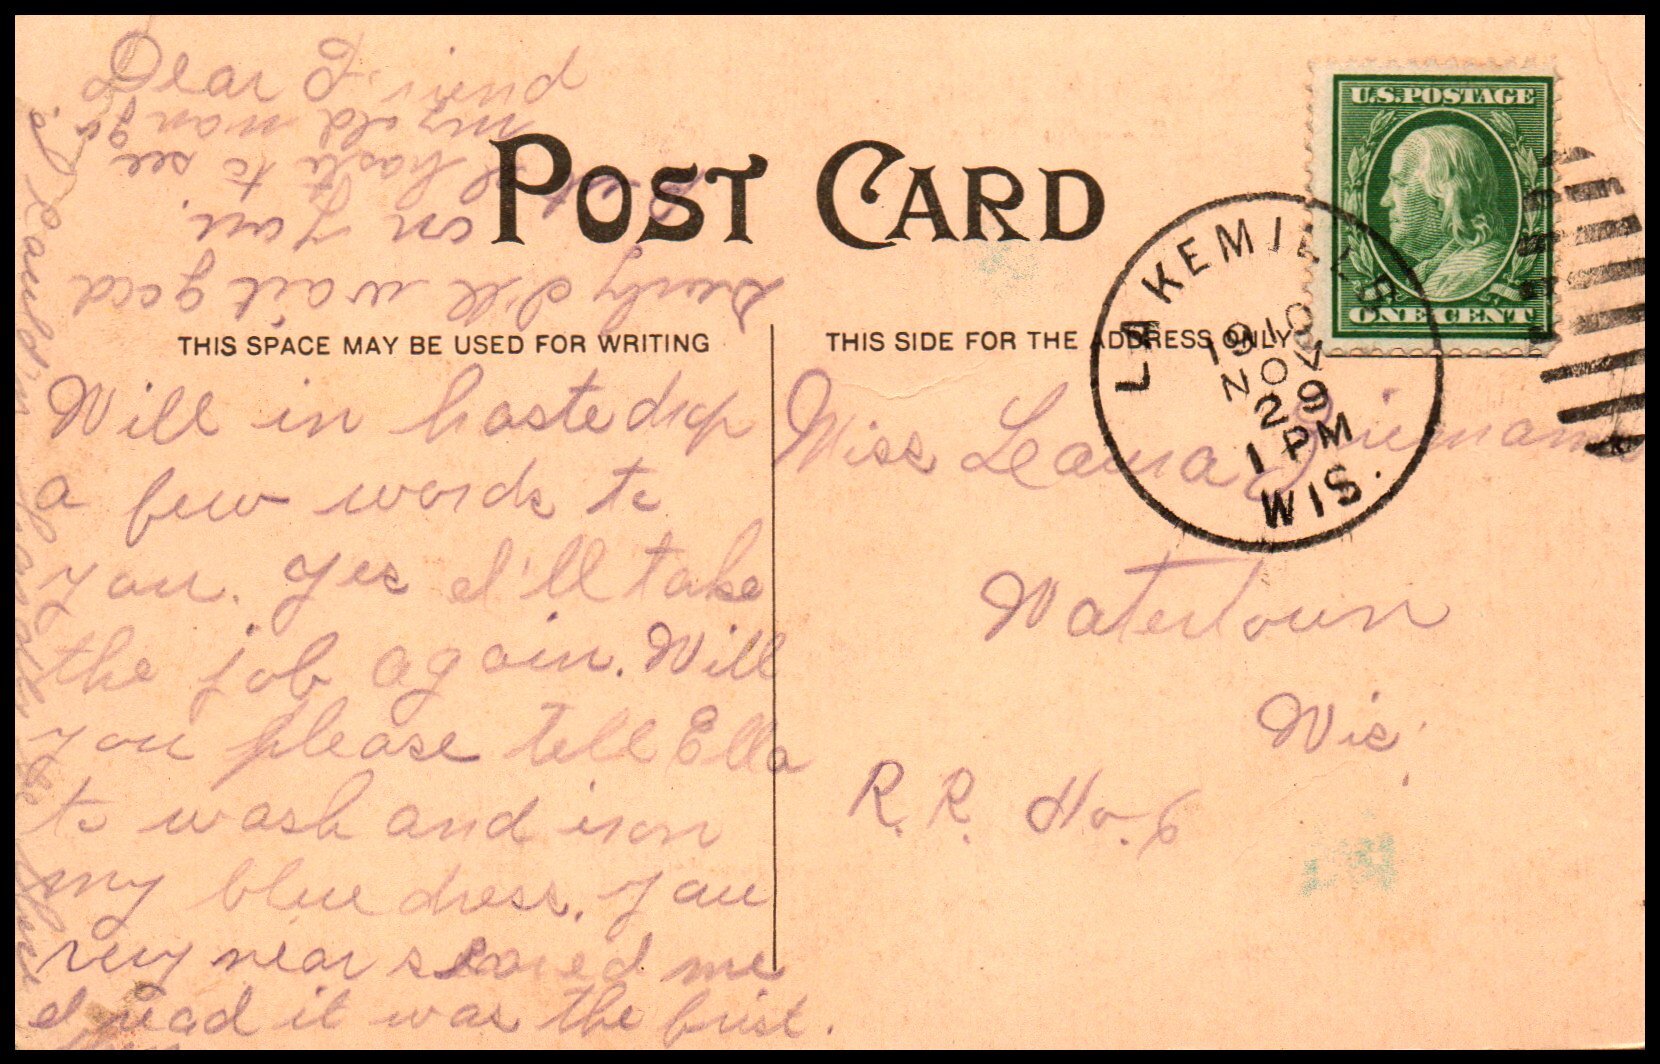 Dear
POST CARD
U.S. POSTAGE
ONE CENT
LAKE MILLS
1910
NOV
29
1 PM
WIS.
THIS SPACE MAY BE USED FOR WRITING
THIS SIDE FOR THE ADDRESS ONLY
Will in haste drop
a few words to
you. Yes I'll take
the job again. Will
you please tell Ella
to wash and iron
my blue dress. You
very near scared me
I read it was the first.
Surely I'll wait good
on you.
haste to see
my old man
Miss Leona
Watertown
Wis.
R.R. No. 6